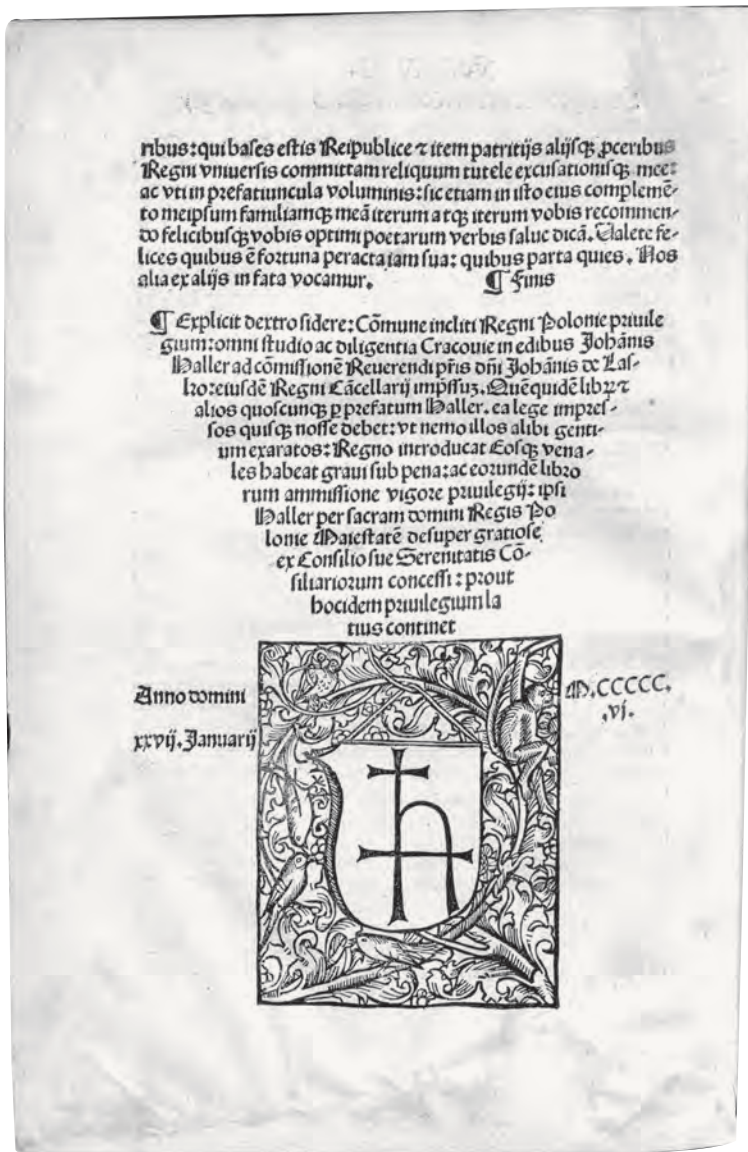 ribus: qui bases estis Reipublice ⁊ item patritijs alijsqꝫ ꝓceribus
Regni vniuersis committam reliquum tutele excusationisqꝫ mee:
ac vti in prefatiuncula voluminis: sic etiam in isto eius complemē-
to meipsum familiamqꝫ meā iterum atqꝫ iterum vobis recommen-
do felicibusqꝫ vobis optimi poetarum verbis salue dicā. Ualete fe-
lices quibus ē fortuna peracta iam sua: quibus parta quies. Nos
alia ex alijs in fata vocamur. ¶ Finis
¶ Explicit dextro sidere: Cōmune incliti Regni Polonie priuile
gium: omni studio ac diligentia Cracouie in edibus Johānis
Haller ad cōmissionē Reuerendi pr̄is dn̄i Johānis de Las-
ko: eiusdē Regni Cācellarij imp̄ssuꝫ. Quēquidē libꝝ ⁊
alios quoscunqꝫ ꝑ prefatum Haller. ea lege impres-
sos quisqꝫ nosse debet: vt nemo illos alibi genti-
um exaratos: Regno introducat Eosqꝫ vena-
les habeat graui sub pena: ac eorundē libro
rum ammissione vigore priuilegij: ipsi
Haller per sacram domini Regis Po
lonie Maiestatē desuper gratiose
ex Consilio sue Serenitatis Cō-
siliariorum concessi: prout
hocidem priuilegium la
tius continet
Anno domini M.CCCCC.
.vj.
xxvij. Januarij
h